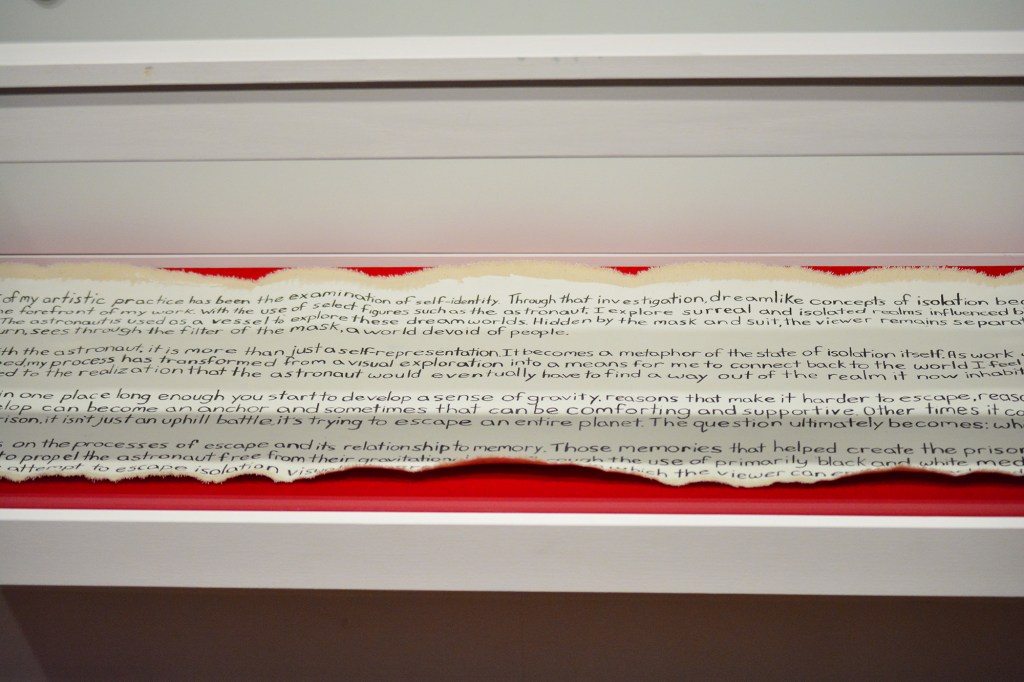 of my artistic practice has been the examination of self-identity. Through that investigation, dreamlike concepts of isolation
forefront of my work. With the use of select figures such as the astronaut, I explore surreal and isolated realms influenced
The astronaut is used as a vessel to explore these dream worlds. Hidden by the mask and suit, the viewer remains
sees through the filter of the mask, a world devoid of people.
the astronaut, it is more than just a self-representation. It becomes a metaphor of the state of isolation itself. As work
my process has transformed from a visual exploration into a means for me to connect back to the world I feel
to the realization that the astronaut would eventually have to find a way out of the realm it now
in one place long enough you start to develop a sense of gravity, reasons that make it harder to escape,
can become an anchor and sometimes that can be comforting and supportive. Other times it
it isn't just an uphill battle, it's trying to escape an entire planet. The question ultimately becomes:
on the processes of escape and its relationship to memory. Those memories that helped create the prison
to propel the astronaut free from their the use of primarily black and white
attempt to escape isolation which the viewer can